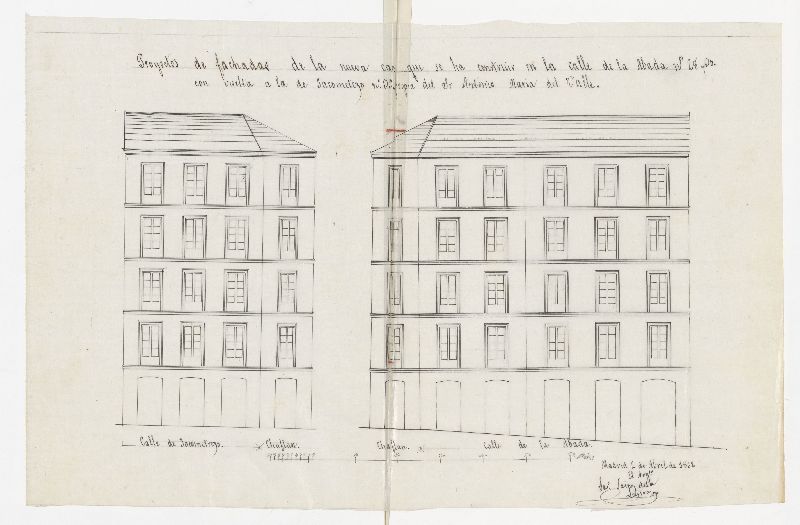 Proyectos de fachadas de la nueva casa que se ha construir en la calle de la Abada nº 28 y
con vuelta a la de Jacometrezo nº propia del Sr Antonio Maria del Valle.
Calle de Jacometrezo. Chaflan. Chaflan. Calle de la Abada.
Madrid 2 de Abril de 1862
El Arqto
José